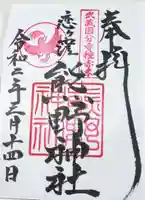 奉拝
武蔵国分寺種赤米
恋ヶ窪
熊野神社
令和二年二月十四日